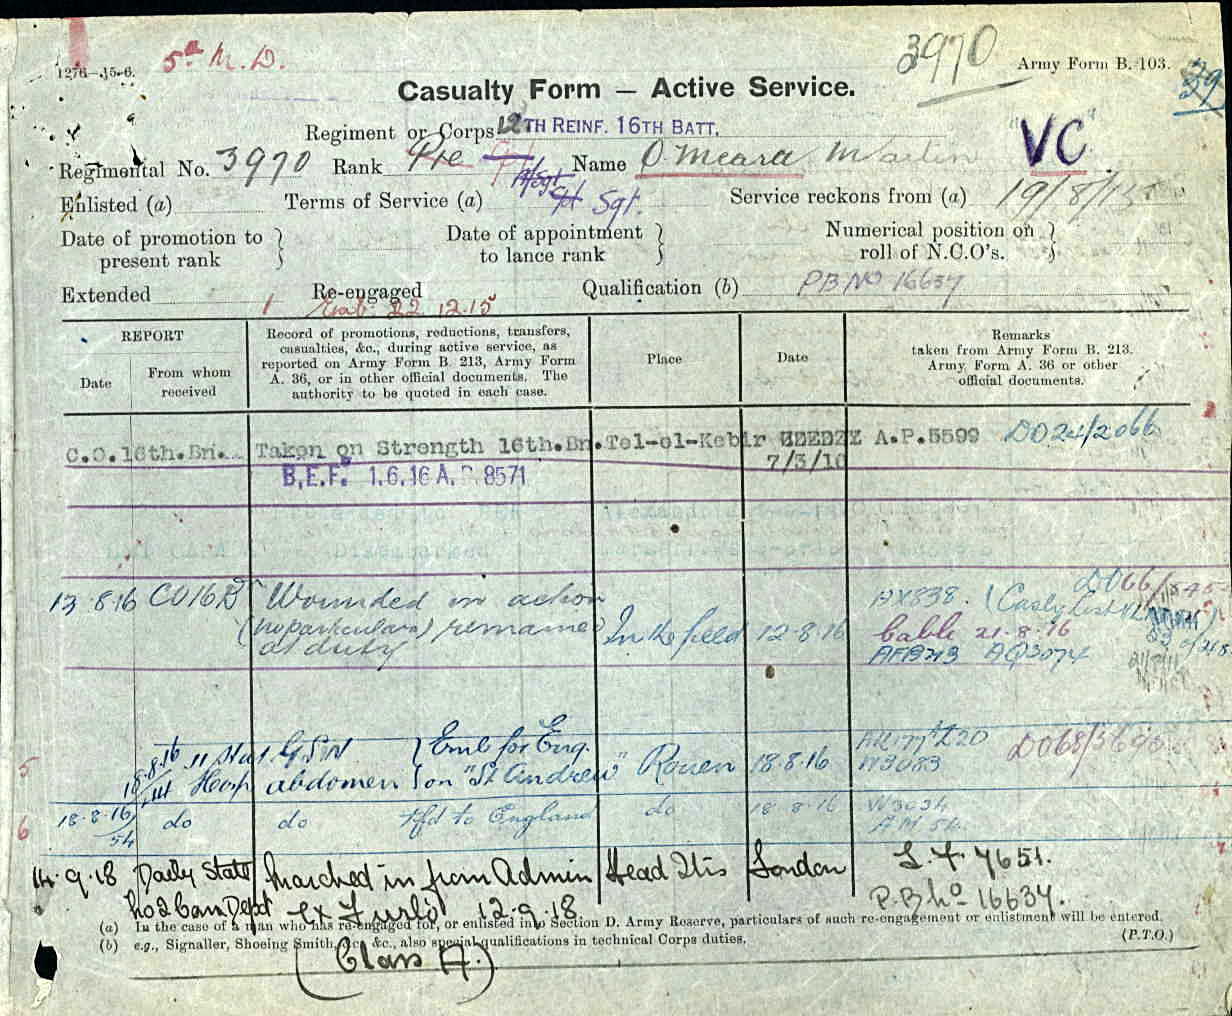 1276—15-6.
5th M. D.
3970
Army Form B. 103.
39
Casualty Form — Active Service.
Regiment or Corps 12TH REINF. 16TH BATT.
"VC"
Regimental No. 3970 Rank Pte Name O'Meara Martin
Enlisted (a) Terms of Service (a) Sgt. Service reckons from (a) 19/8/15
Date of promotion to present rank } Date of appointment to lance rank } Numerical position on roll of N.C.O's. }
Extended Re-engaged Qualification (b) PB No 16634
Emb. 22.12.15
REPORT
Date
From whom received
Record of promotions, reductions, transfers, casualties, &c., during active service, as reported on Army Form B. 213, Army Form A. 36, or in other official documents. The authority to be quoted in each case.
Place
Date
Remarks
taken from Army Form B. 213. Army Form A. 36 or other official documents.
C.O.16th.Bn. Taken on Strength 16th.Bn. Tel-el-Kebir A.P.5599 DO24/2066
7/3/16
B.E.F. 1.6.16 A. 8571
13.8.16 CO16B Wounded in action (no particulars) remained at duty In the field 12.8.16
Cable 21-8-16
AFB213 AQ3074
5 18.8.16 11 Stat. Hosp GSW abdomen { Emb for Eng. on "St Andrew" Rouen 18.8.16 W3083
6 18-8-16/54 do do Tfd to England do 18 8-16 W3034
AM 54.
14.9.18 Daily State Marched in from Admin Head Qtrs London L.F. 7651.
No 2 Com Dept ex Furlo' 12.9.18 P.B No 16634.
(a) In the case of a man who has re-engaged for, or enlisted into Section D. Army Reserve, particulars of such re-engagement or enlistment will be entered.
(b) e.g., Signaller, Shoeing Smith, &c., &c., also special qualifications in technical Corps duties.
(P.T.O.)
(Class A.)